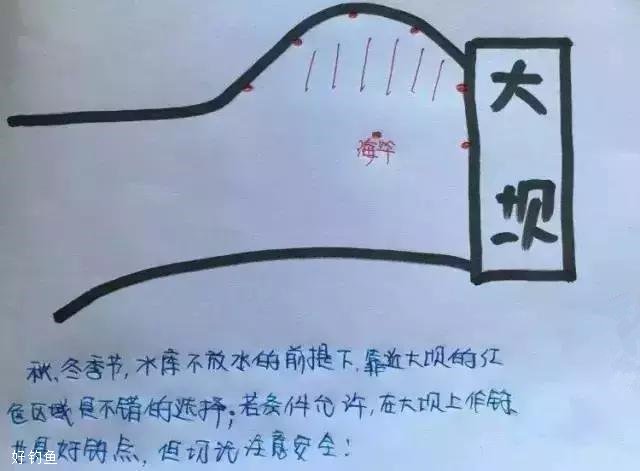 大坝
海竿
秋、冬季节,水库不放水的前提下,靠近大坝的红
色区域是不错的选择;若条件允许,在大坝上作钓
也是好钓点,但切记注意安全!
好钓鱼